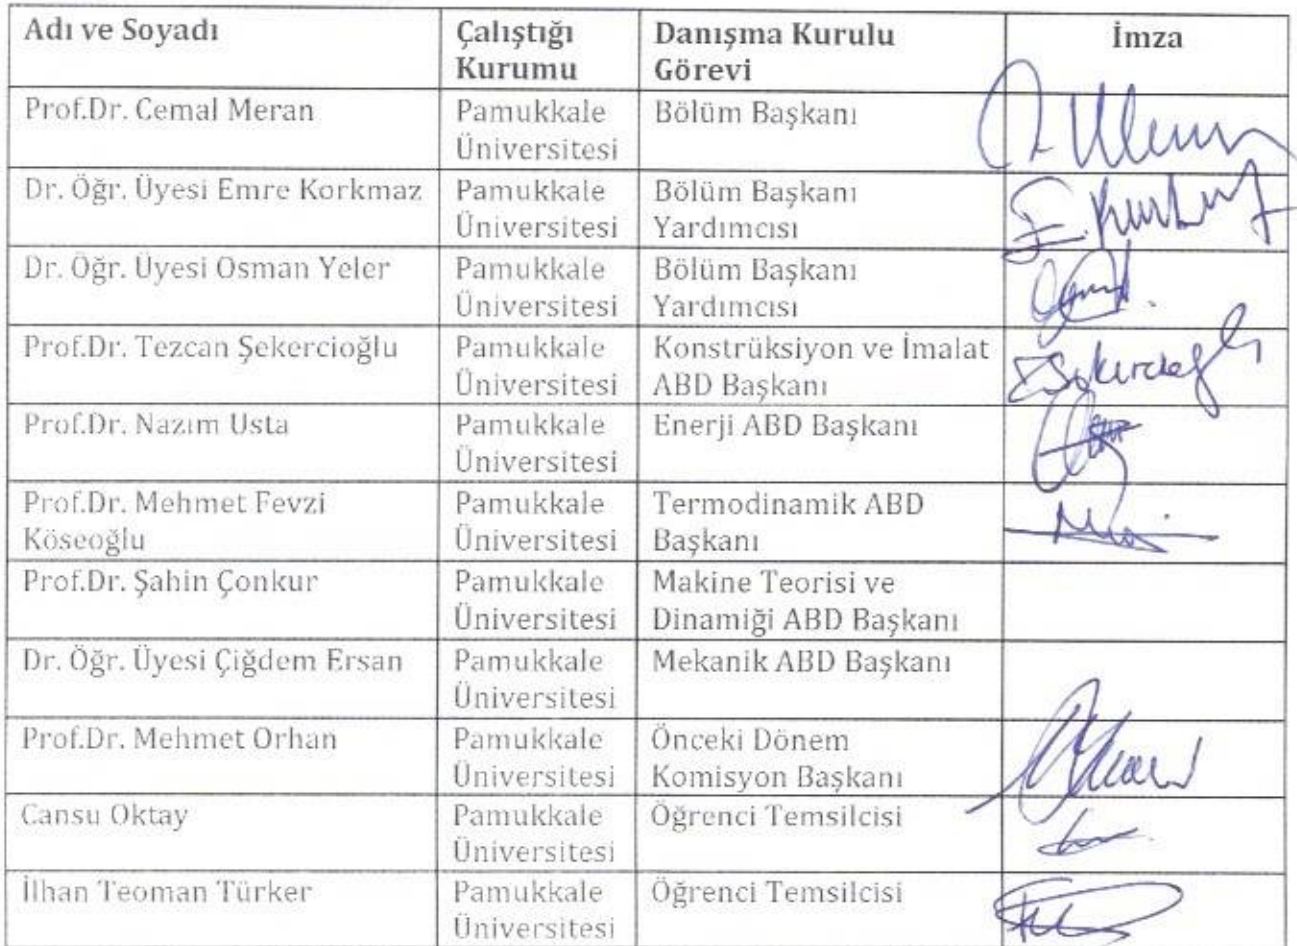 Adı ve Soyadı
Çalıştığı
Kurumu
Danışma Kurulu
Görevi
İmza
Prof.Dr. Cemal Meran
Pamukkale
Üniversitesi
Bölüm Başkanı
Dr. Öğr. Üyesi Emre Korkmaz
Pamukkale
Üniversitesi
Bölüm Başkanı
Yardımcısı
Dr. Öğr. Üyesi Osman Yeler
Pamukkale
Üniversitesi
Bölüm Başkanı
Yardımcısı
Prof.Dr. Tezcan Şekercioğlu
Pamukkale
Üniversitesi
Konstrüksiyon ve İmalat
ABD Başkanı
Prof.Dr. Nazım Usta
Pamukkale
Üniversitesi
Enerji ABD Başkanı
Prof.Dr. Mehmet Fevzi
Köseoğlu
Pamukkale
Üniversitesi
Termodinamik ABD
Başkanı
Prof.Dr. Şahin Çonkur
Pamukkale
Üniversitesi
Makine Teorisi ve
Dinamiği ABD Başkanı
Dr. Öğr. Üyesi Çiğdem Ersan
Pamukkale
Üniversitesi
Mekanik ABD Başkanı
Prof.Dr. Mehmet Orhan
Pamukkale
Üniversitesi
Önceki Dönem
Komisyon Başkanı
Cansu Oktay
Pamukkale
Üniversitesi
Öğrenci Temsilcisi
İlhan Teoman Türker
Pamukkale
Üniversitesi
Öğrenci Temsilcisi